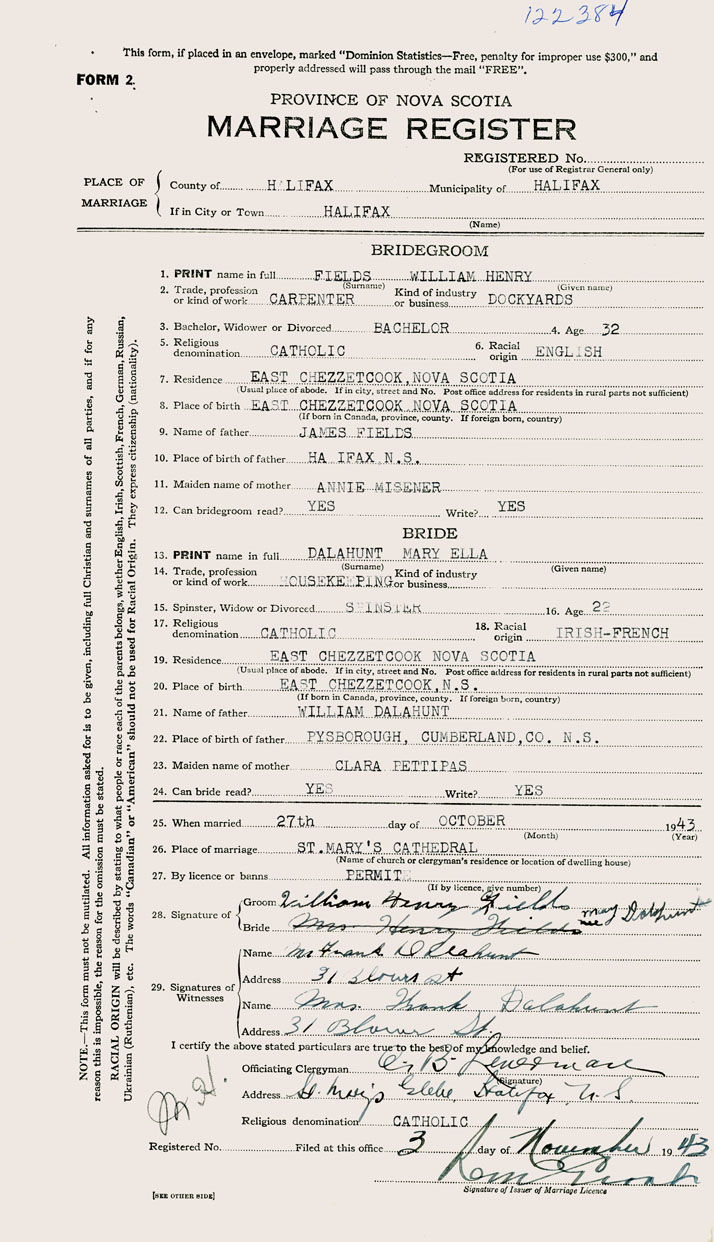 122384
This form, if placed in an envelope, marked "Dominion Statistics—Free, penalty for improper use $300," and
properly addressed will pass through the mail "FREE".
FORM 2.
PROVINCE OF NOVA SCOTIA
MARRIAGE REGISTER
REGISTERED No.
(For use of Registrar General only)
PLACE OF MARRIAGE
County of H LIFAX Municipality of HALIFAX
If in City or Town HALIFAX
(Name)
BRIDEGROOM
1. PRINT name in full FIELDS WILLIAM HENRY
(Surname) (Given name)
2. Trade, profession or kind of work CARPENTER Kind of industry or business DOCKYARDS
3. Bachelor, Widower or Divorced BACHELOR 4. Age 32
5. Religious denomination CATHOLIC 6. Racial origin ENGLISH
7. Residence EAST CHEZZETCOOK, NOVA SCOTIA
(Usual place of abode. If in city, street and No. Post office address for residents in rural parts not sufficient)
8. Place of birth EAST CHEZZETCOOK NOVA SCOTIA
(If born in Canada, province, county. If foreign born, country)
9. Name of father JAMES FIELDS
10. Place of birth of father HA IFAX N.S.
11. Maiden name of mother ANNIE MISENER
12. Can bridegroom read? YES Write? YES
BRIDE
13. PRINT name in full DALAHUNT MARY ELLA
(Surname) (Given name)
14. Trade, profession or kind of work HOUSEKEEPING Kind of industry or business
15. Spinster, Widow or Divorced SPINSTER 16. Age 22
17. Religious denomination CATHOLIC 18. Racial origin IRISH-FRENCH
19. Residence EAST CHEZZETCOOK NOVA SCOTIA
(Usual place of abode. If in city, street and No. Post office address for residents in rural parts not sufficient)
20. Place of birth EAST CHEZZETCOOK, N.S.
(If born in Canada, province, county. If foreign born, country)
21. Name of father WILLIAM DALAHUNT
22. Place of birth of father PYSBOROUGH, CUMBERLAND, CO. N.S.
23. Maiden name of mother CLARA PETTIPAS
24. Can bride read? YES Write? YES
25. When married 27th day of OCTOBER 1943
(Month) (Year)
26. Place of marriage ST. MARY'S CATHEDRAL
(Name of church or clergyman's residence or location of dwelling house)
27. By licence or banns PERMIT
(If by licence, give number)
28. Signature of
Groom William Henry Fields
Bride Mrs Henry Fields nee May Dalahunt
29. Signatures of Witnesses
Name Mr Frank Delahunt
Address 31 Blowers st
Name Mrs. Frank Dalahunt
Address 31 Blower St.
I certify the above stated particulars are true to the best of my knowledge and belief.
Officiating Clergyman
(Signature)
Address St. Mary's Glebe, Halifax N.S.
Religious denomination CATHOLIC
Registered No. Filed at this office 3 day of November 1943
Signature of Issuer of Marriage Licence
[SEE OTHER SIDE]
NOTE.—This form must not be mutilated. All information asked for is to be given, including full Christian and surnames of all parties, and if for any
reason this is impossible, the reason for the omission must be stated.
RACIAL ORIGIN will be described by stating to what people or race each of the parents belongs, whether English, Irish, Scottish, French, German, Russian,
Ukrainian (Ruthenian), etc. The words "Canadian" or "American" should not be used for Racial Origin. They express citizenship (nationality).